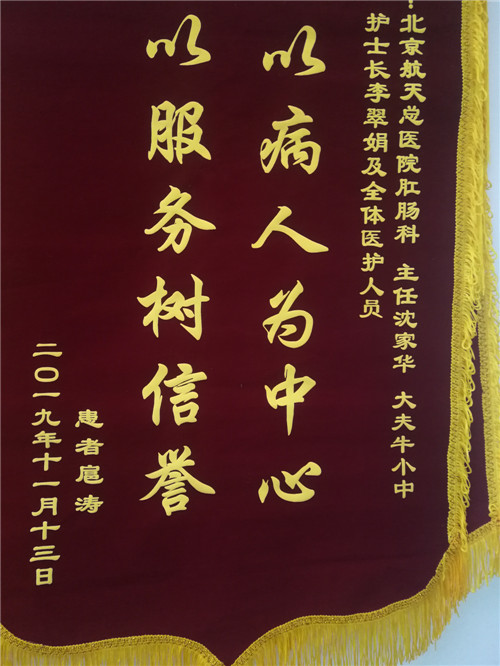 ：北京航天总医院肛肠科 主任沈家华 大夫牛小中
护士长李翠娟及全体医护人员
以病人为中心
以服务树信誉
患者扈涛
二〇一九年十一月十三日